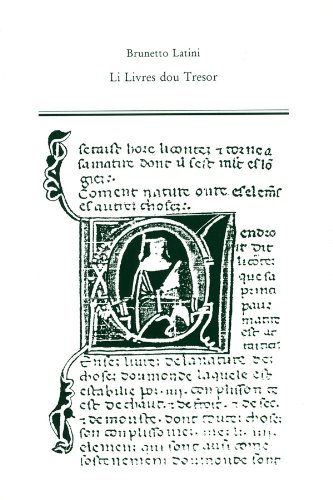 Brunetto Latini
Li Livres dou Tresor
se taist hore li contes & torne a
sa matire dont il sest mis es lo
gier.
Coment nature ovre es elems
es autres choses.
endroi
it dit
li
que sa
prima
matire
est at
En ses livres de la nature des
choses dou monde laquele est
establie por .iiii. conplission ce
est de chaut. & de froit. & de sec.
& de moiste. dont toutes choses
son conplissionees. mes li .iiii.
element qui sont ausi come
sostenement dou monde sont